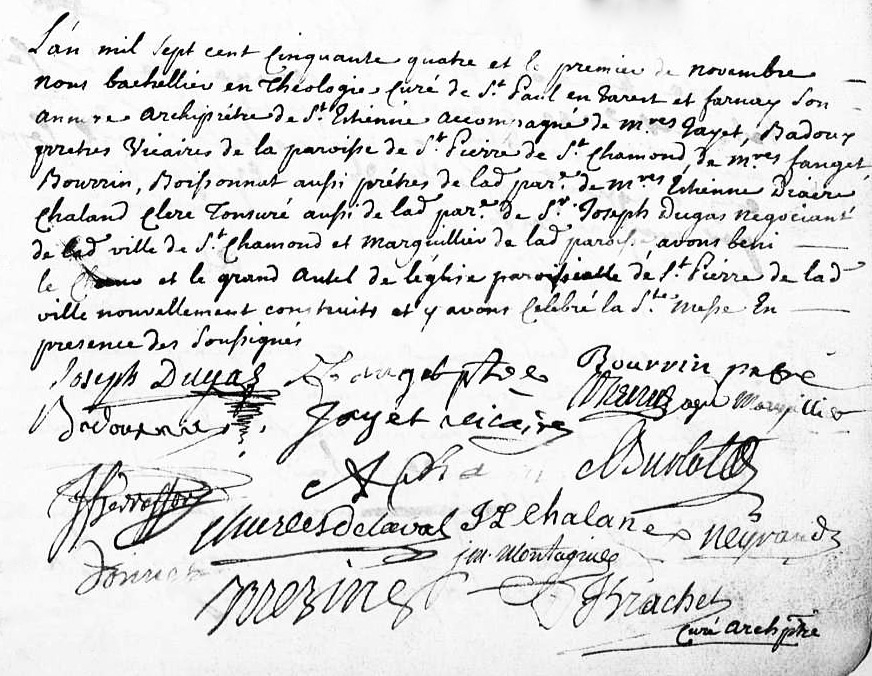 L'an mil sept cent cinquante quatre et le premier de novembre
nous bachellier en Théologie, curé de St. Paul en Jarest et farnay son
annexe archiprêtre de St. Etienne accompagné de mres Jayet, Badoux
prêtres vicaires de la paroisse de St. Pierre de St. Chamond de mres fanget
Bourrin, Boissonnat aussi prêtres de lad. par.e de mres Etienne
Chaland Clerc Tonsuré aussi de lad par.e de Sr. Joseph Dugas negociant
de lad ville de St. Chamond et Marguillier de lad paroisse avons beni
le et le grand Autel de l'église paroissialle de St. Pierre de lad
ville nouvellement construits et y avons Celebré la Ste. Messe En
presence des Soussignés
Joseph Dugas fanget ptre Bourrin prêtre
Badoux vic Jayet vicaire Marguillier
Burlat
Chalane Neyrand
jm. Montagnier
Brachet
Curé archiptre